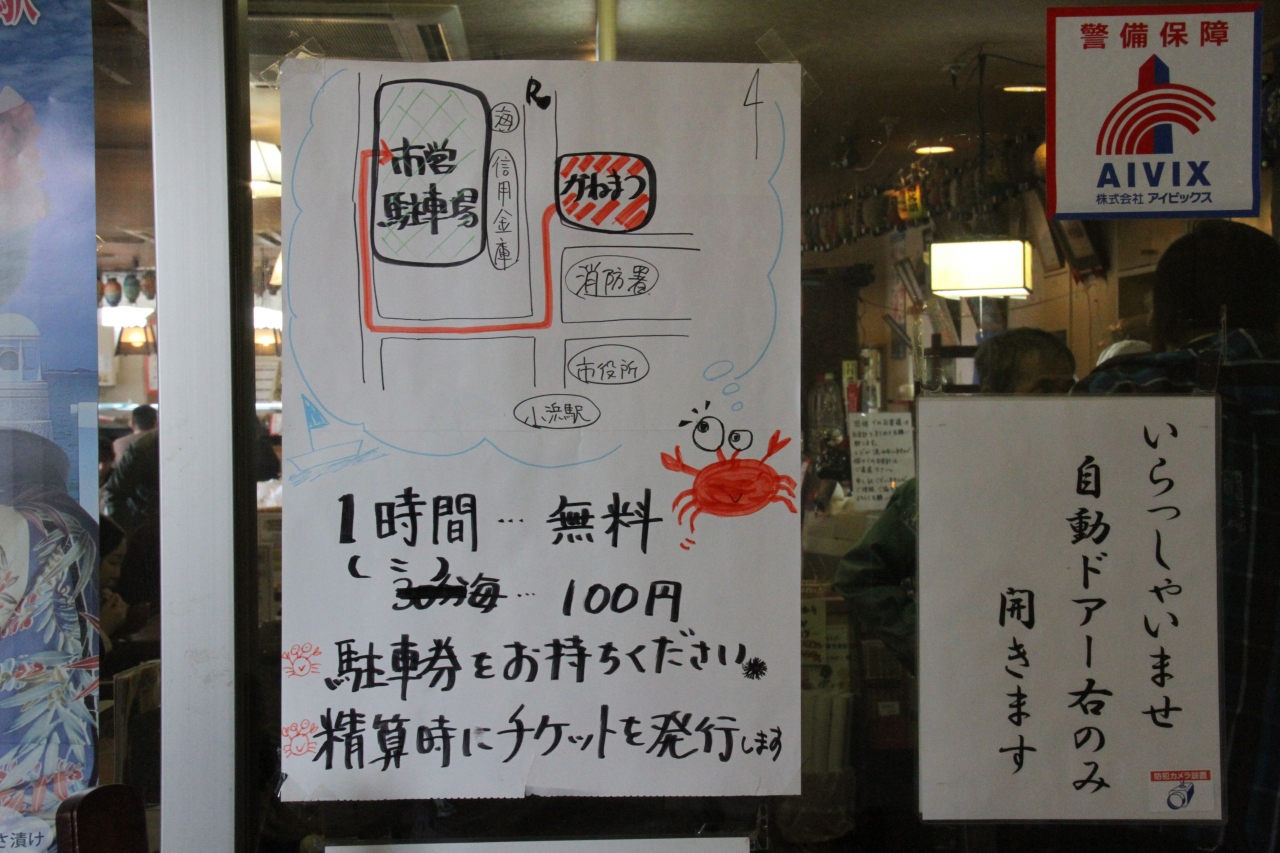 駅
市営
駐車場
海
信用金庫
R
4
かねまつ
消防署
市役所
小浜駅
1時間…無料
海…100円
駐車券をお持ちください
精算時にチケットを発行します
警備保障
AIVIX
株式会社アイビックス
いらっしゃいませ
自動ドアー右のみ
開きます
防犯カメラ設置
さ漬け